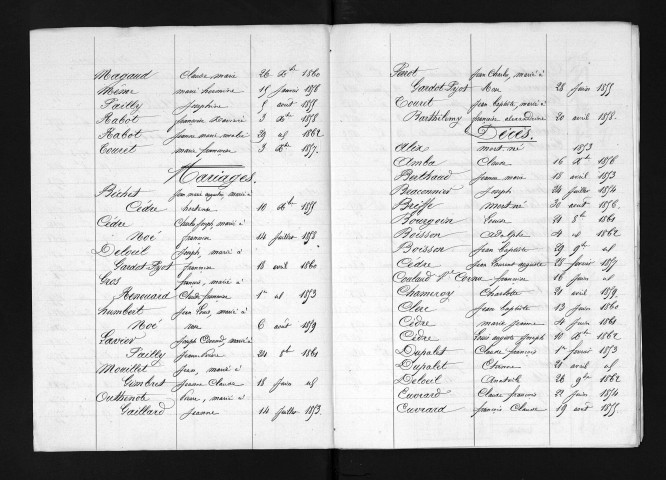 Magaud Claude marie 26 Xbre 1860
marie hermine 15 janvier 1856
Pailly Josephine 8 août 1855
Rabot françoise 3 Xbre 1858
Rabot jeanne marie 29 id 1862
Couret marie françoise 3 Xbre 1857.
Mariages.
Bichet jean marie auguste, marié à
Cédre 10 Xbre 1855
Cédre Charles Joseph, marié à
Noé françoise 14 Juillet 1858
Deloul Joseph, marié à
Gardot Pyot françoise 18 avril 1860
Gros françois, marié à
Renouard Claude françoise 1er id 1853
humbert Jean Louis, marié à
Noé 6 août 1859
Savior Joseph, marié à
Pailly 24 8bre 1861
Mouillet Jean, marié à
Gimbret Jeanne Claude 18 Juin id
Outhenote marié à
Gaillard Jeanne 14 Juillet 1853.
Perrot Jean Charles, marié à
Gardot Pyot 28 Juin 1855
Couret Jean baptiste, marié à
Barthélemy françoise alexandrine 20 avril 1858.
Décès.
Alix mort né 1853
Amba 16 Xbre 1856
Berthaud Jeanne marie 18 avril 1853
Braconnier Joseph 24 Juillet 1854
mort né 30 août 1856.
Bourgoin Louise 21 8bre 1861
Boisson Adolphe 4 id 1862
Boisson Jean baptiste 29 9bre id
Cédre Jean Laurent auguste 25 février 1857
françoise 16 Juin id
Chameroy Charlotte 21 avril 1859.
Clerc Jean baptiste 13 Juin 1860
Cédre marie jeanne 4 Juin 1861
Cédre Louis auguste Joseph 10 Xbre 1862
Dupalet Claude françois 1er février 1853
Dupalet Etienne 21 avril id
Deloul 26 9bre 1862
Euvrard Claude françois 22 Juin 1854
Euvrard françois Claude 19 avril 1855.